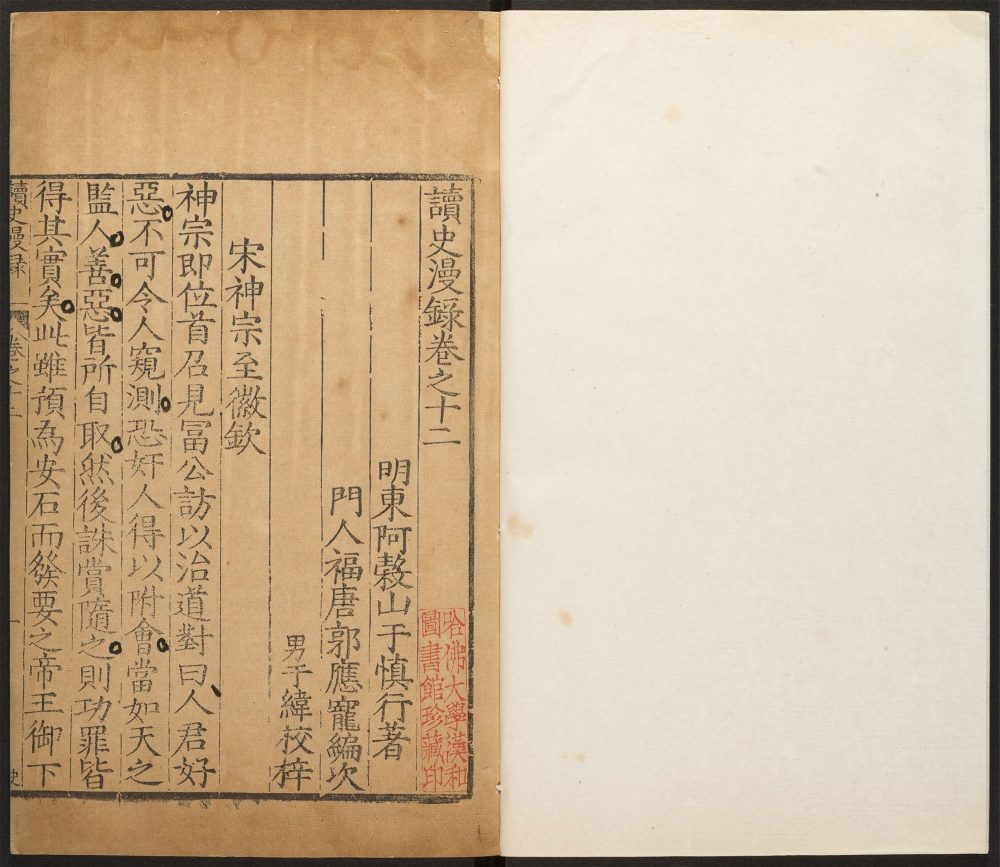 讀史漫錄卷之十二
哈佛大學漢和
圖書館珍藏印
明東阿穀山于慎行著
門人福唐郭應寵編次
男于緯校梓
宋神宗至徽欽
神宗即位首召見冨公訪以治道對曰人君好
惡不可令人窺測恐奸人得以附會當如天之
監人善惡皆所自取然後誅賞隨之則功罪皆
得其實矣此雖預為安石而發要之帝王御下
讀史漫録
卷之十二
一